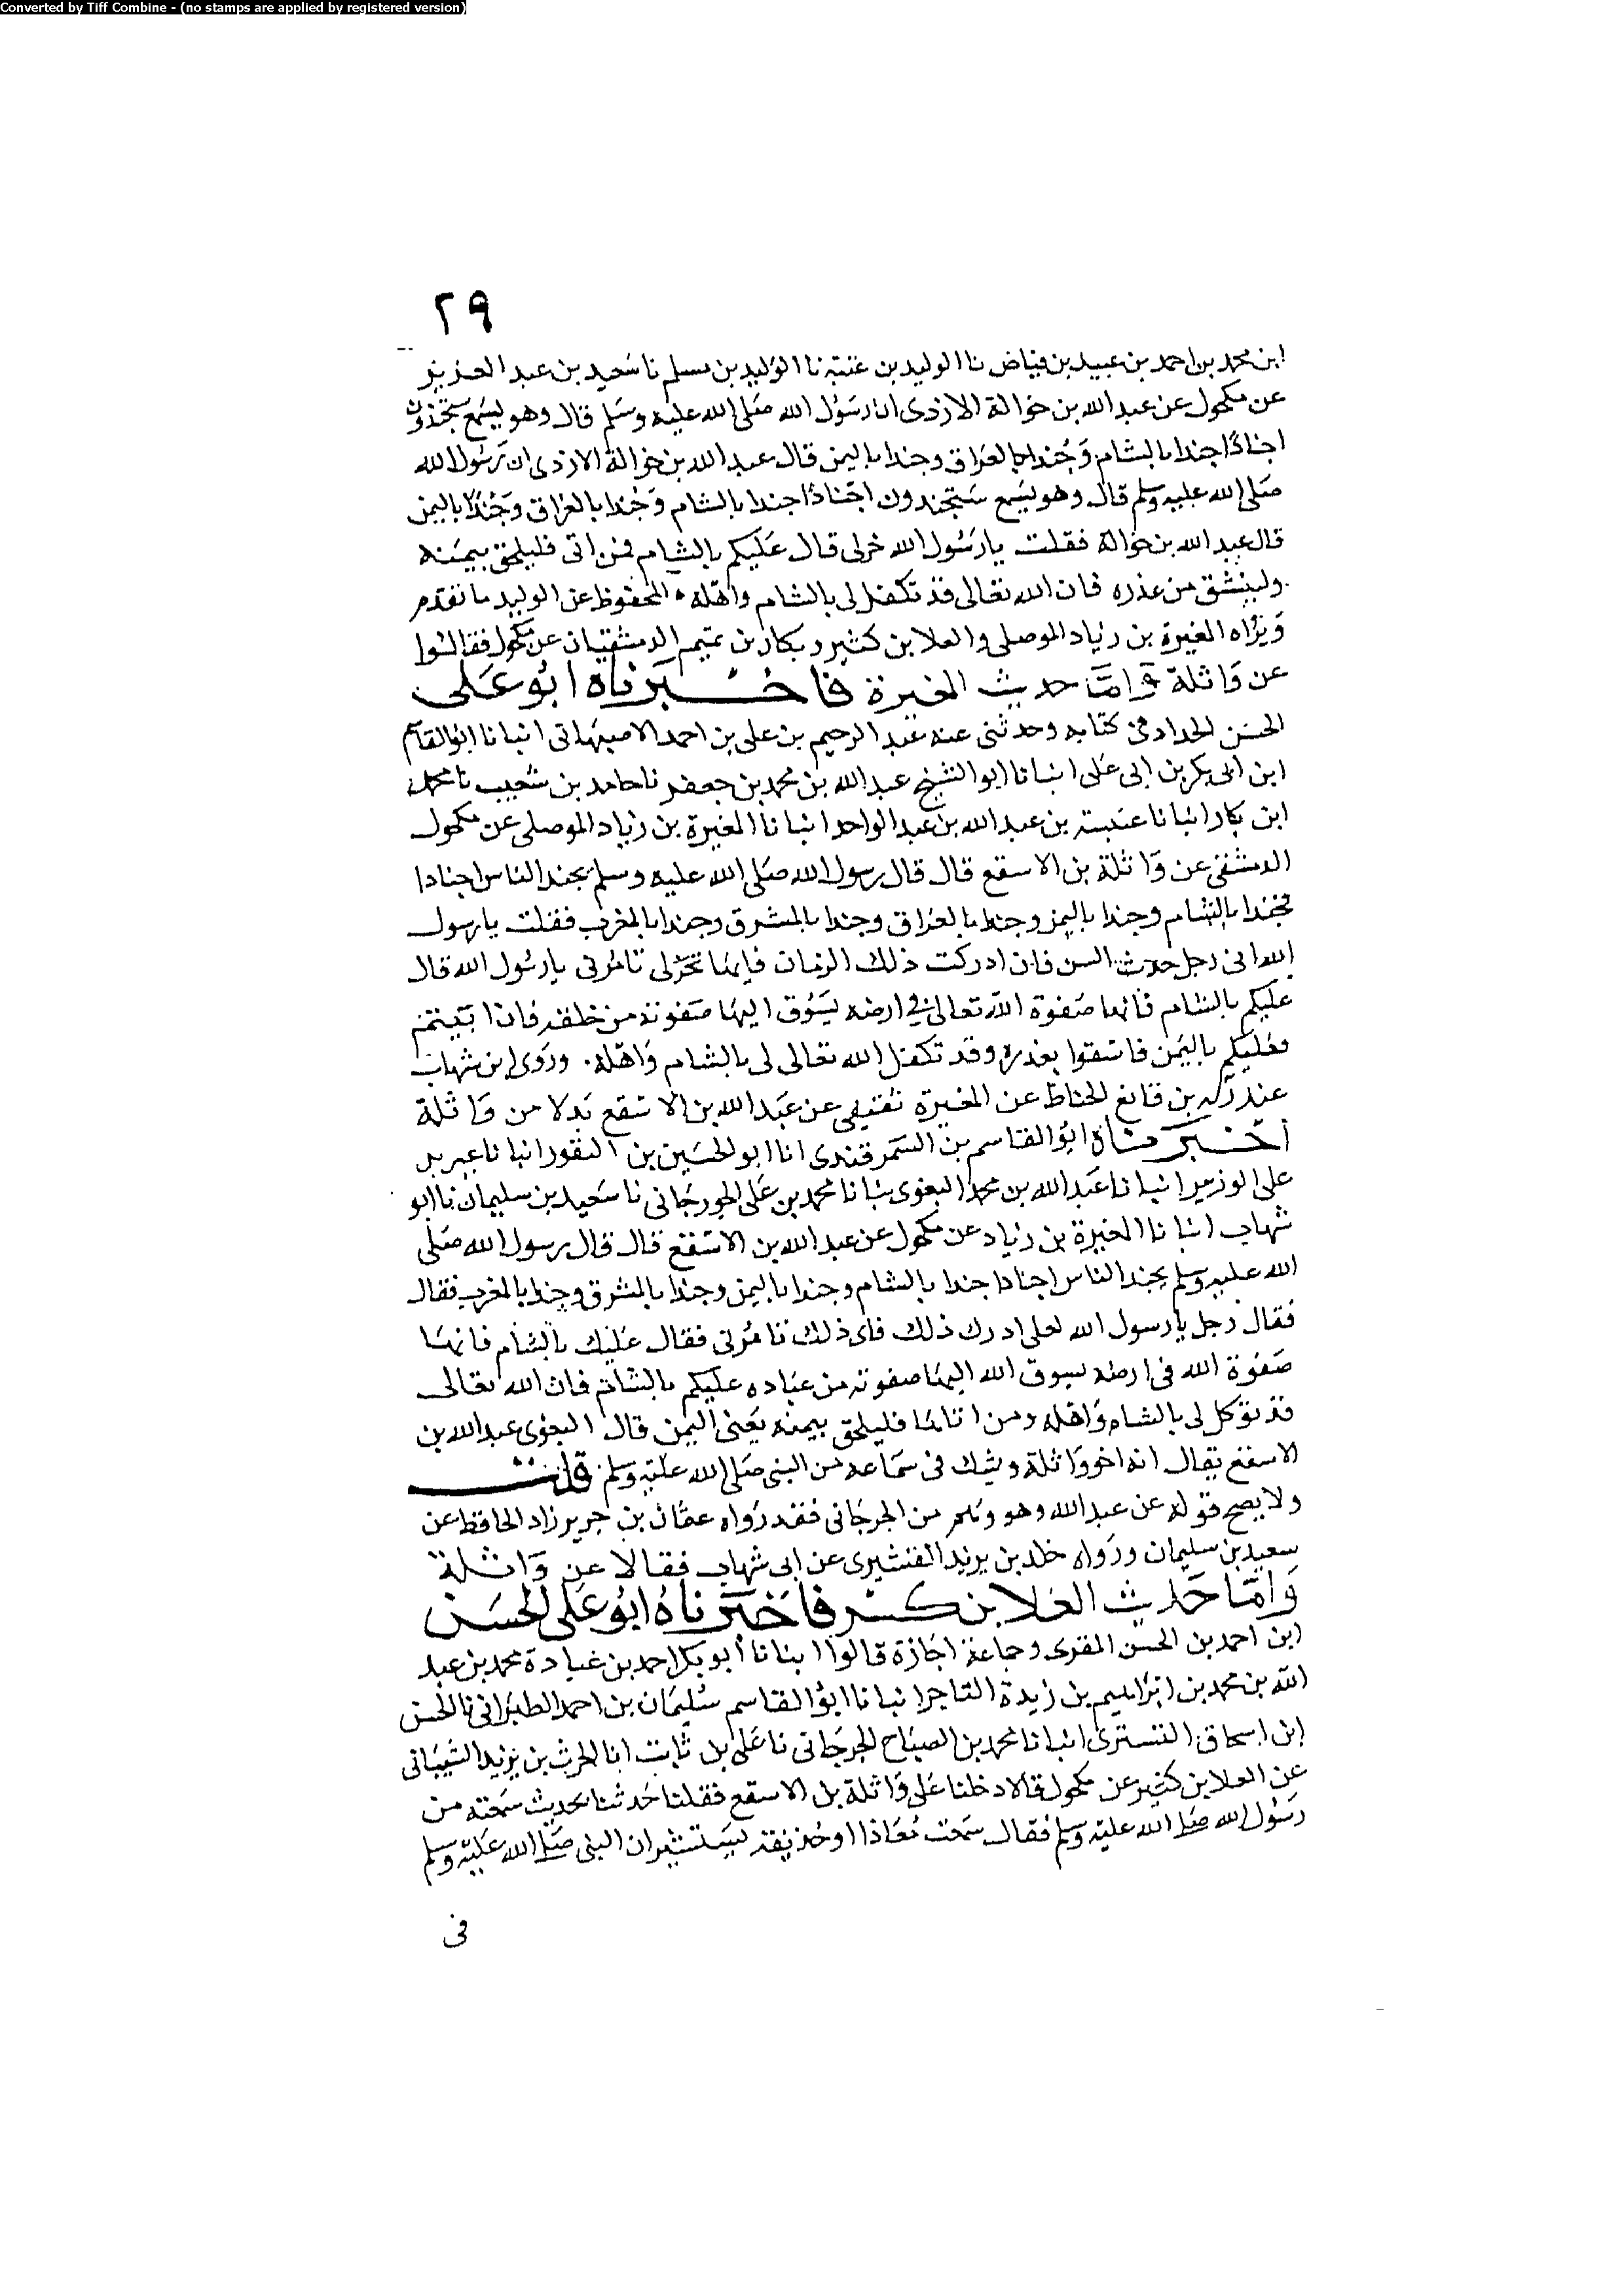 Converted by Tiff Combine - (no stamps are applied by registered version)
٢٩
ابن محمد بن احمد بن عبيد بن فياض نا الوليد بن عتبة نا الوليد بن مسلم نا سعيد بن عبد العزيز
عن مكحول عن عبد الله بن حوالة الازدى ان رسول الله صلى الله عليه وسلم قال وهو يسمع ستجندون
اجنادا جندا بالشام وجندا بالعراق وجندا باليمن قال عبد الله بن حوالة الازدى ان رسول الله
صلى الله عليه وسلم قال وهو يسمع ستجندون اجنادا جندا بالشام وجندا بالعراق وجندا باليمن
قال عبد الله بن حوالة فقلت يا رسول الله خر لى قال عليكم بالشام فمن ابى فليلحق بيمنه
وليستق من غدره فان الله تعالى قد تكفل لى بالشام واهله المحفوظ عن الوليد ما تقدم
ورواه المغيرة بن زياد الموصلى والعلا بن كثير وبكار بن تميم الدمشقيان عن مكحول فقالوا
عن واثلة واما حديث المغيرة فاخبرناه ابو على
الحسن الحداد فى كتابه وحدثنى عنه عبد الرحيم بن على بن احمد الاصبهانى انبانا ابو القاسم
ابن ابى بكر بن ابى على انبانا ابو الشيخ عبد الله بن محمد بن جعفر نا حامد بن شعيب نا محمد
ابن بكار انبانا عنبسة بن عبد الله بن عبد الواحد انبانا المغيرة بن زياد الموصلى عن مكحول
الدمشقى عن واثلة بن الاسقع قال قال رسول الله صلى الله عليه وسلم يجند الناس اجنادا
فجندا بالشام وجندا باليمن وجندا بالعراق وجندا بالمشرق وجندا بالمغرب فقلت يا رسول
الله انى رجل حدث السن فان ادركت ذلك الزمان فايها تخر لى تامرنى يا رسول الله قال
عليكم بالشام فانها صفوة الله تعالى فى ارضه يسوق اليها صفوته من خلقه فاذا ابيتم
فعليكم باليمن فاسقوا بغدره وقد تكفل الله تعالى لى بالشام واهله. وروى ابن شهاب
عبد ربه بن نافع الحناط عن المغيرة عن عبد الله بن الاسقع بدلا من واثلة
اخبرناه ابو القاسم بن السمرقندى انا ابو الحسين بن النقور انبانا عيسى بن
على الوزير انبانا عبد الله بن محمد البغوى نبانا محمد بن على الجورجانى نا سعيد بن سليمان نا ابو
شهاب انبانا المغيرة بن زياد عن مكحول عن عبد الله بن الاسقع قال قال رسول الله صلى
الله عليه وسلم يجند الناس اجنادا جندا بالشام وجندا باليمن وجندا بالمشرق وجندا بالمغرب فقال
فقال رجل يا رسول الله لعلى ادرك ذلك فاى ذلك تامرنى فقال عليك بالشام فانها
صفوة الله فى ارضه يسوق الله اليها صفوته من عباده عليكم بالشام فان الله تعالى
قد توكل لى بالشام واهله ومن اتاها فليلحق بيمنه يعنى اليمن قال البغوى عبد الله بن
الاسقع يقال انه اخو واثلة ويشك فى سماعه من النبى صلى الله عليه وسلم قلت
ولا يصح قوله عن عبد الله وهو وهم من الجرجانى فقد رواه عثمان بن حرير زاد الحافظ عن
سعيد بن سليمان ورواه خلد بن يزيد القشيرى عن ابى شهاب فقالا عن واثلة
واما حديث العلا بن كثير فاخبرناه ابو على الحسن
ابن احمد بن الحسن المقرى وجماعة اجازة قالوا انبانا ابو بكر احمد بن عبادة محمد بن عبد
الله بن محمد بن ابراهيم بن زيدة التاجر انبانا ابو القاسم سليمان بن احمد الطبرانى نا الحسن
ابن اسحاق التسترى انبانا محمد بن الصباح الجرجانى نا على بن ثابت انا الحرث بن يزيد الشيبانى
عن العلا بن كثير عن مكحول قالا دخلنا على واثلة بن الاسقع فقلنا حدثنا بحديث سمعته من
رسول الله صلى الله عليه وسلم فقال سمعت معاذا او حذيفة يستشيران النبى صلى الله عليه وسلم
فى